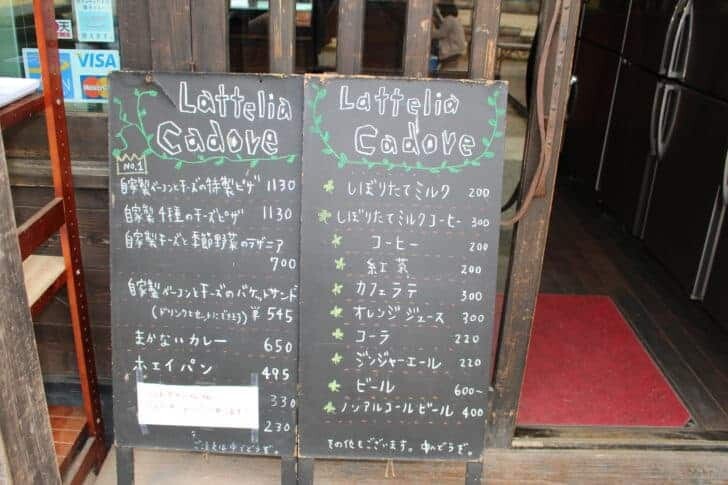 VISA
MasterCard
Lattelia
Cadore
NO.1
自家製ベーコンとチーズの特製ピザ 1130
自家製4種のチーズピザ 1130
自家製チーズと季節野菜のラザニア
700
自家製ベーコンとチーズのバケットサンド
(ドリンクとセットにできます) ¥545
まかないカレー 650
ホエイパン 495
330
230
Lattelia
Cadore
しぼりたてミルク 200
しぼりたてミルクコーヒー 300
コーヒー 200
紅茶 200
カフェラテ 300
オレンジジュース 300
コーラ 220
ジンジャーエール 220
ビール 600~
ノンアルコールビール 400
その他もございます。中へどうぞ。